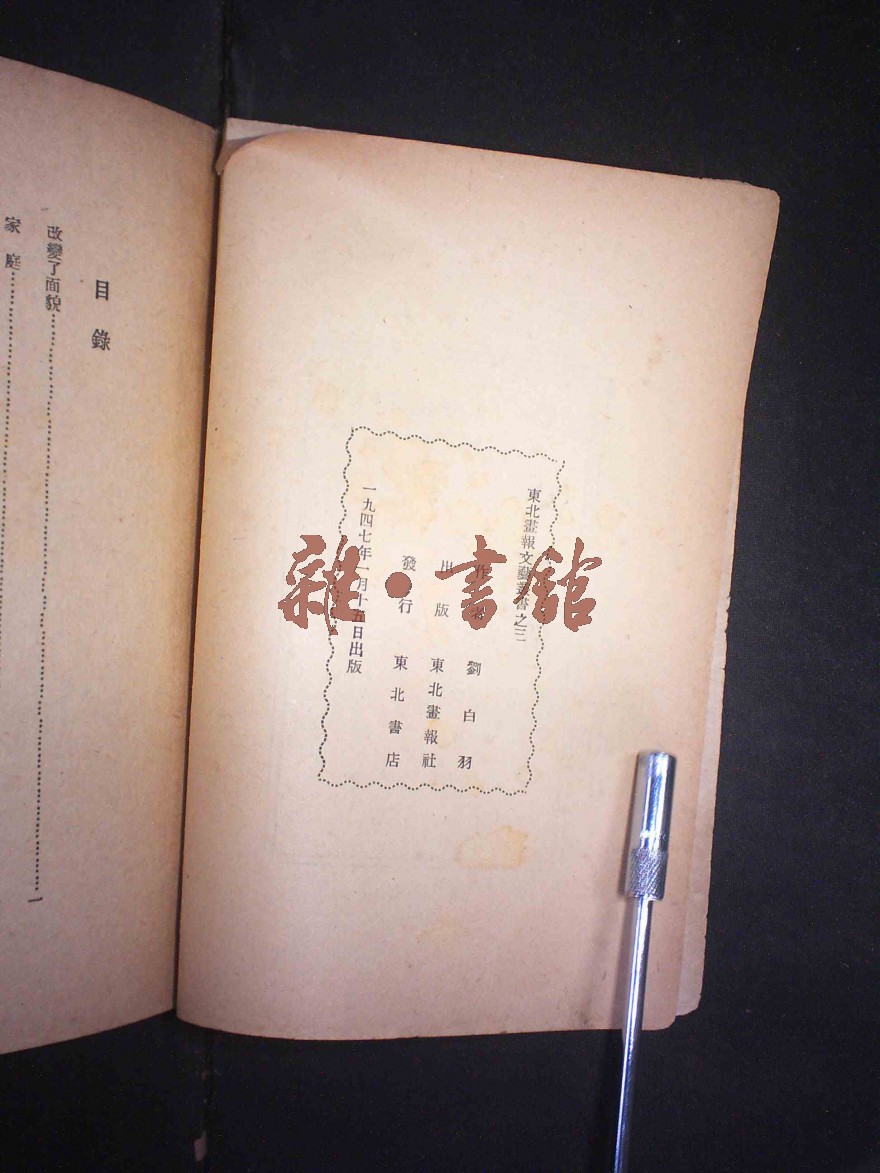 東北畫報文藝叢書之三
作者 劉白羽
出版 東北畫報社
發行 東北書店
一九四七年一月十五日出版
目錄
改變了面貌……一
家庭……
雜·書館